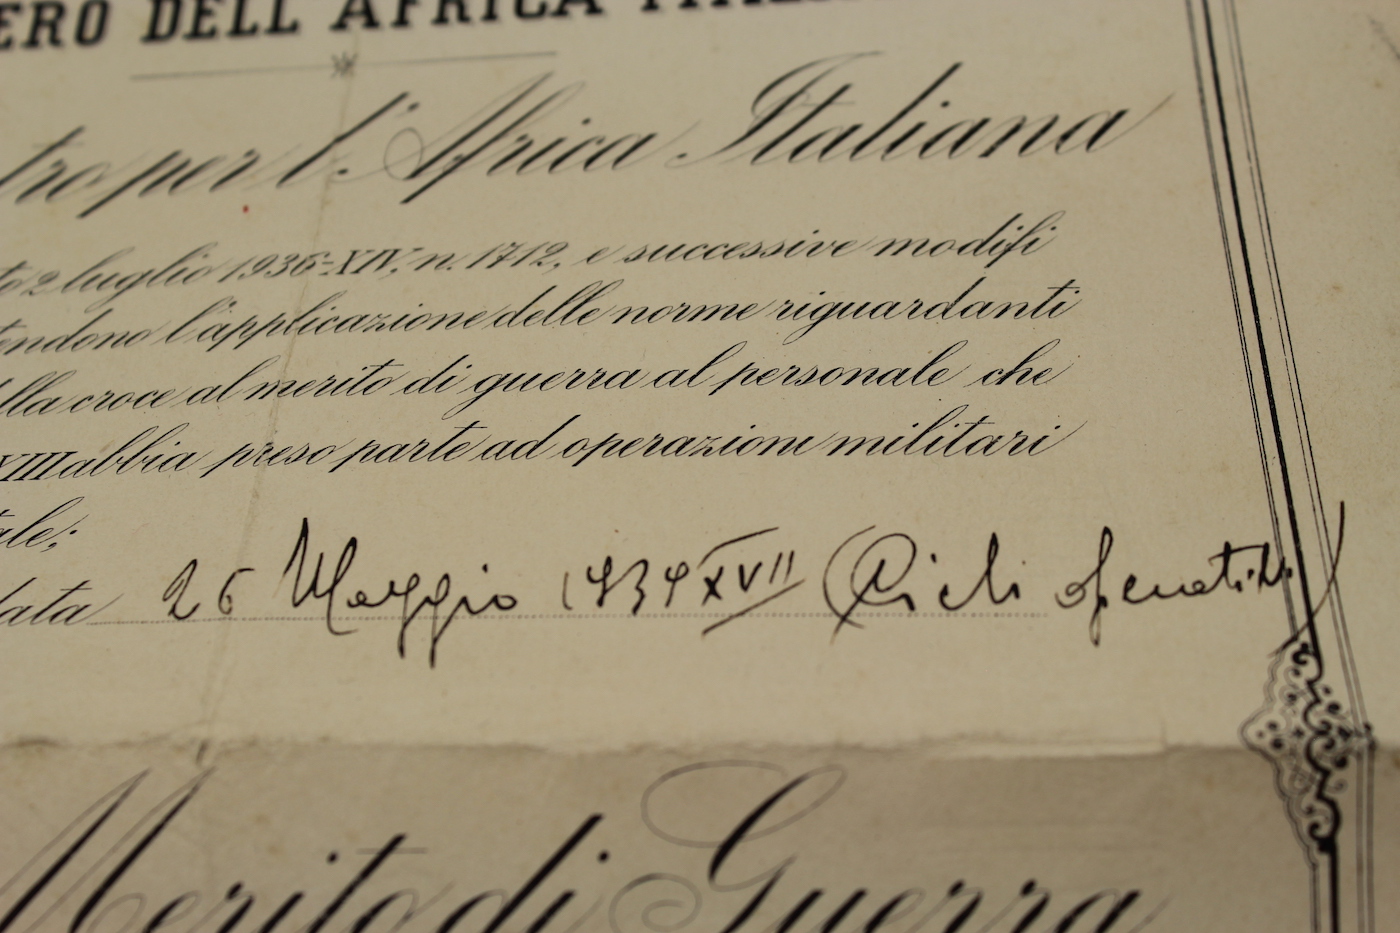 ERO DELL'AFRICA ITALI
tro per l'Africa Italiana
to 2 luglio 1936-XIV, n. 1712, e successive modifi
tendono l'applicazione delle norme riguardanti
lla croce al merito di guerra al personale che
XIII abbia preso parte ad operazioni militari
tale;
data 26 Maggio 1939 XVII (Cicli operativi)
Merito di Guerra